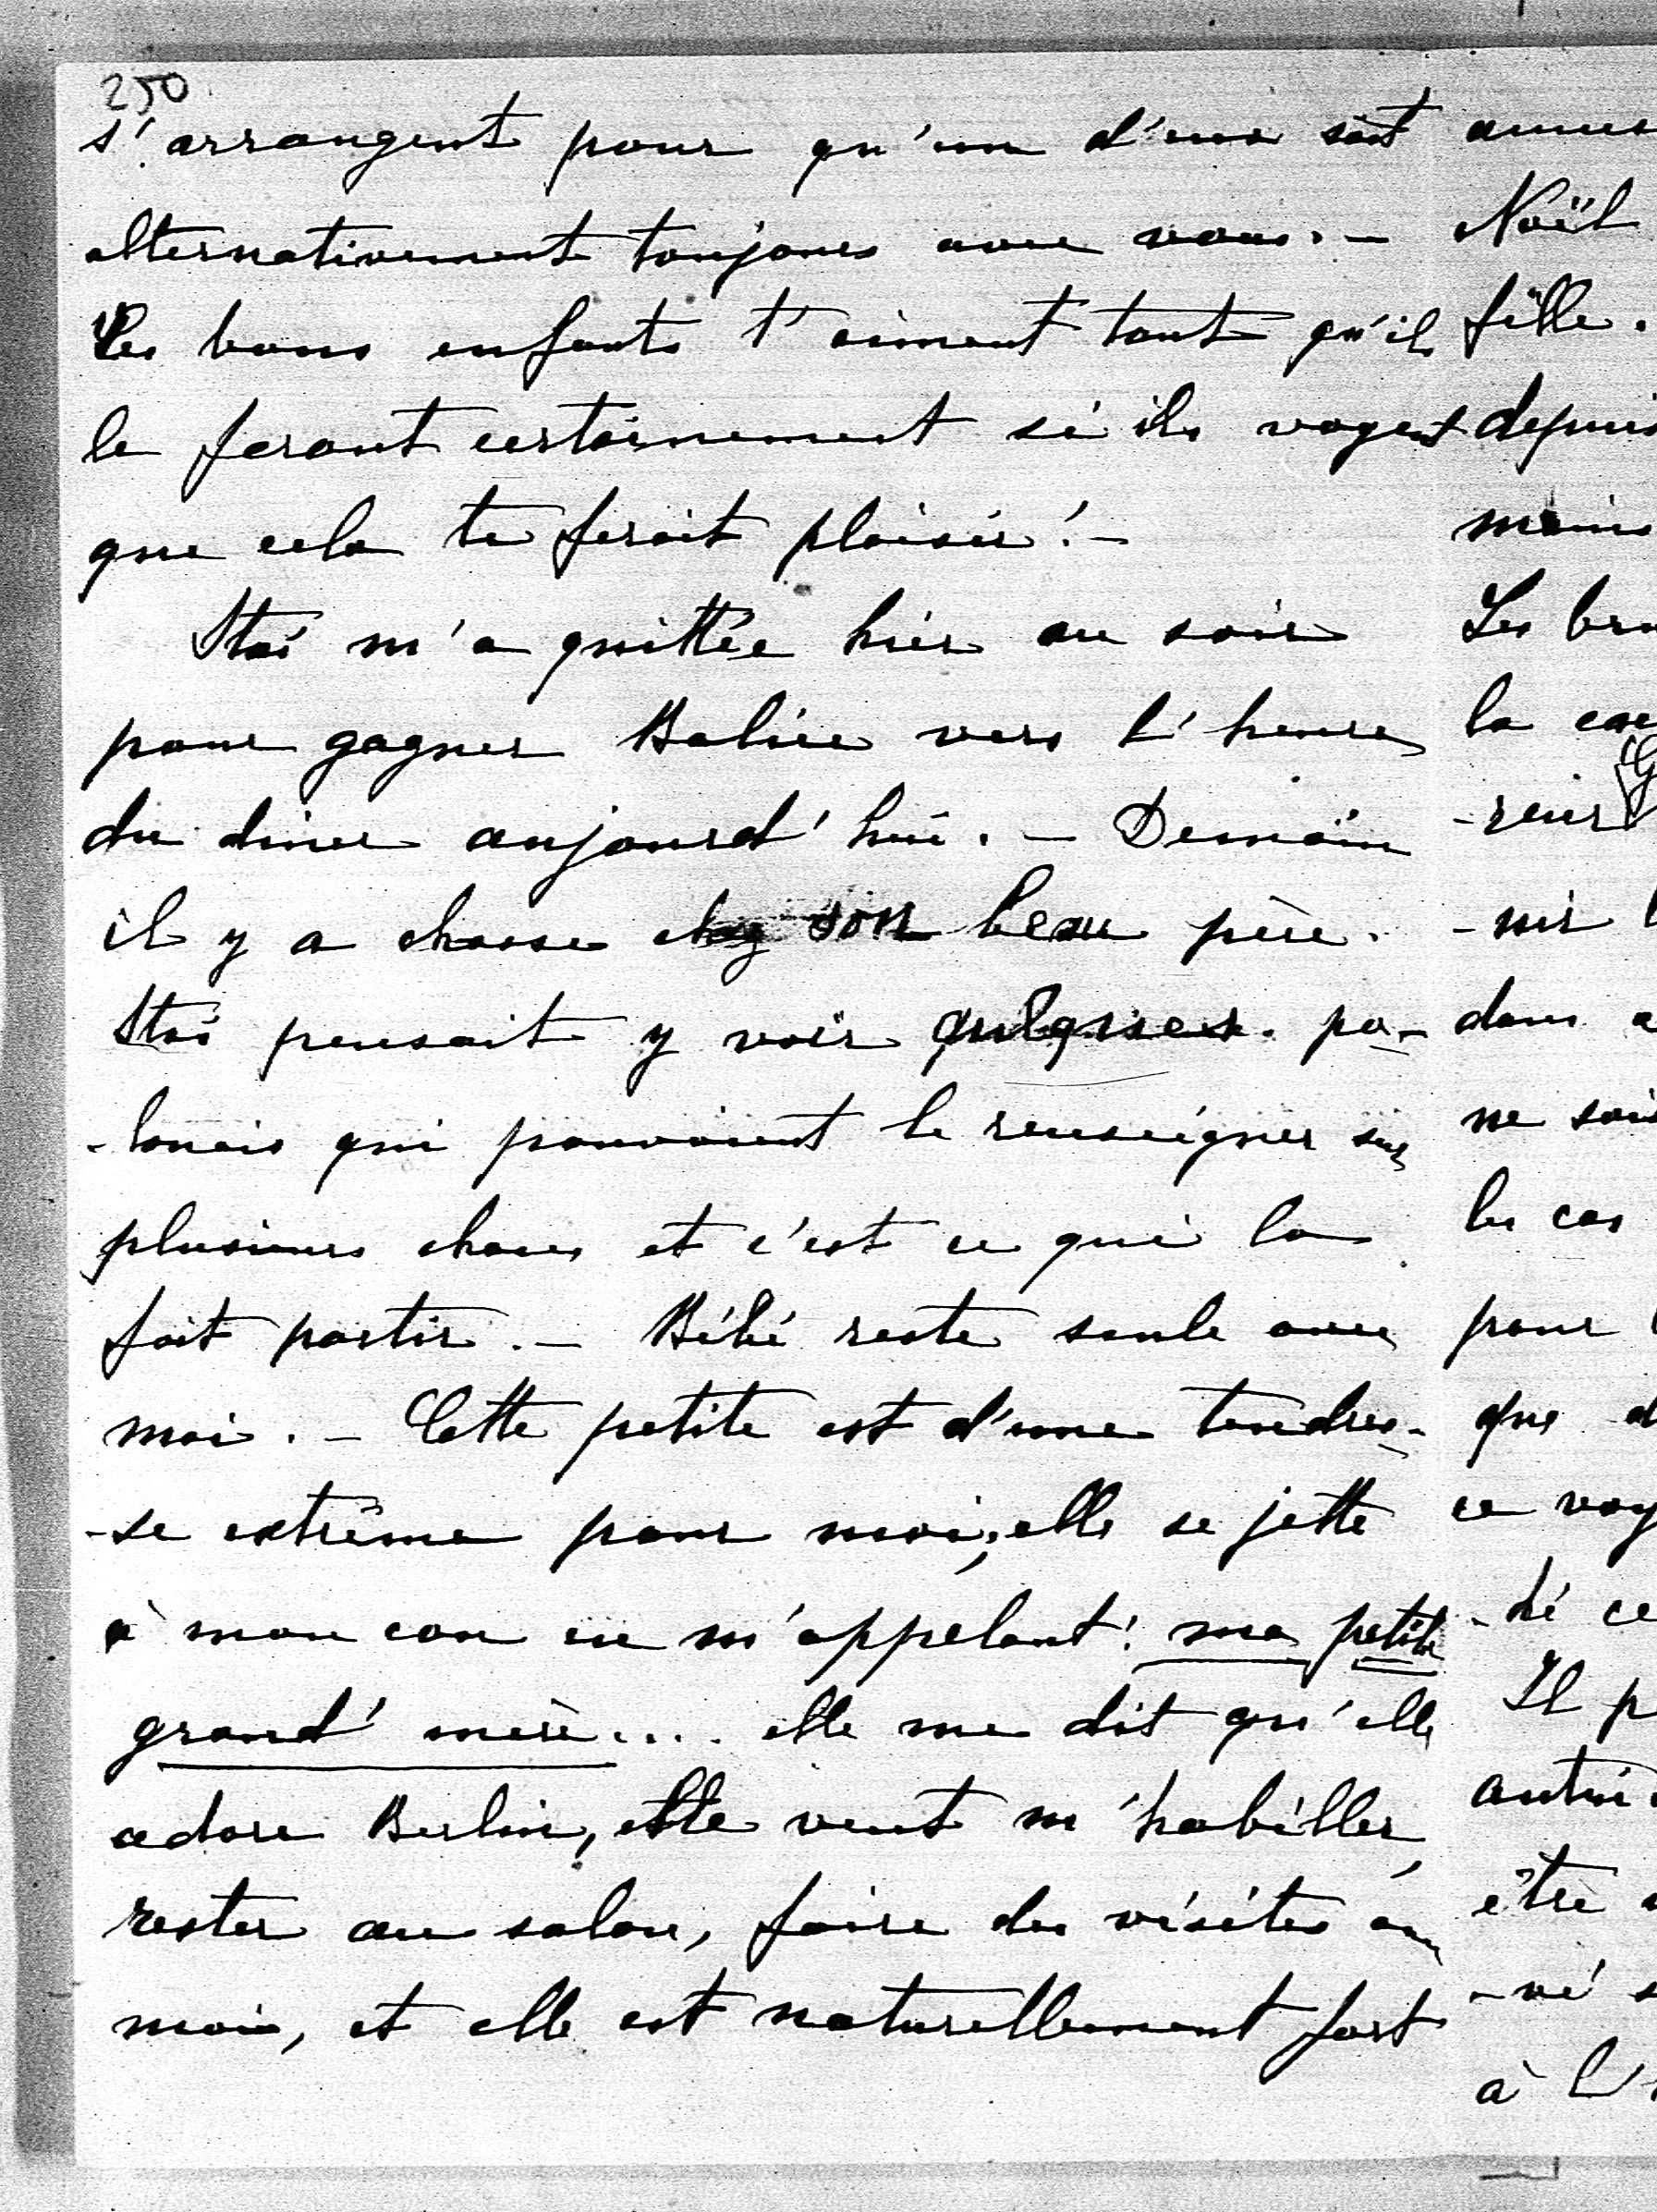 250
s'arrangent pour qu'un d'eux soit
alternativement toujours avec vous. —
Les bons enfants t'aiment tant qu'ils
le feront certainement si ils voyent
que cela te ferait plaisir! —
Stas m'a quittée hier au soir
pour gagner Balice vers l'heure
du diner aujourd'hui. — Demain
il y a chasse chez son beau père.
Stas pensait y voir quelques po-
-lonais qui pouvaient le renseigner sur
plusieurs choses et c'est ce qui l'a
fait partir. — Bébé reste seule avec
moi. — Cette petite est d'une tendres-
-se extrême pour moi, elle se jette
à mon cou en m'appelant: ma petite
grand' mère.... elle me dit qu'elle
adore Berlin, elle veut m'habiller,
rester au salon, faire des visites avec
moi, et elle est naturellement fort
Noël
fille.
depuis
moins
Les
la
-nir
dans
ne
les cas
pour
que
ce
-hé ce
Il
être
-vé
à l'